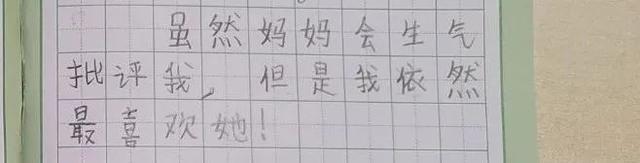 虽然妈妈会生气
批评我，但是我依然
最喜欢她！